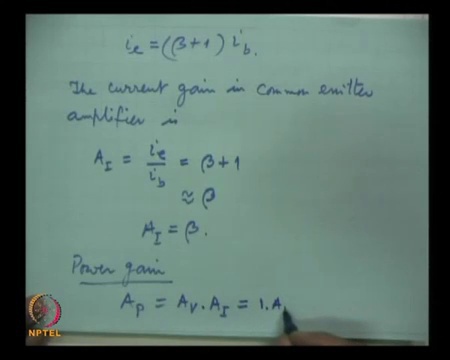 i_e = (β+1) i_b.
The current gain in common emitter
amplifier is
A_I = i_e / i_b = β + 1
≈ β
A_I = β.
Power gain
A_p = A_V . A_I = 1.A
NPTEL